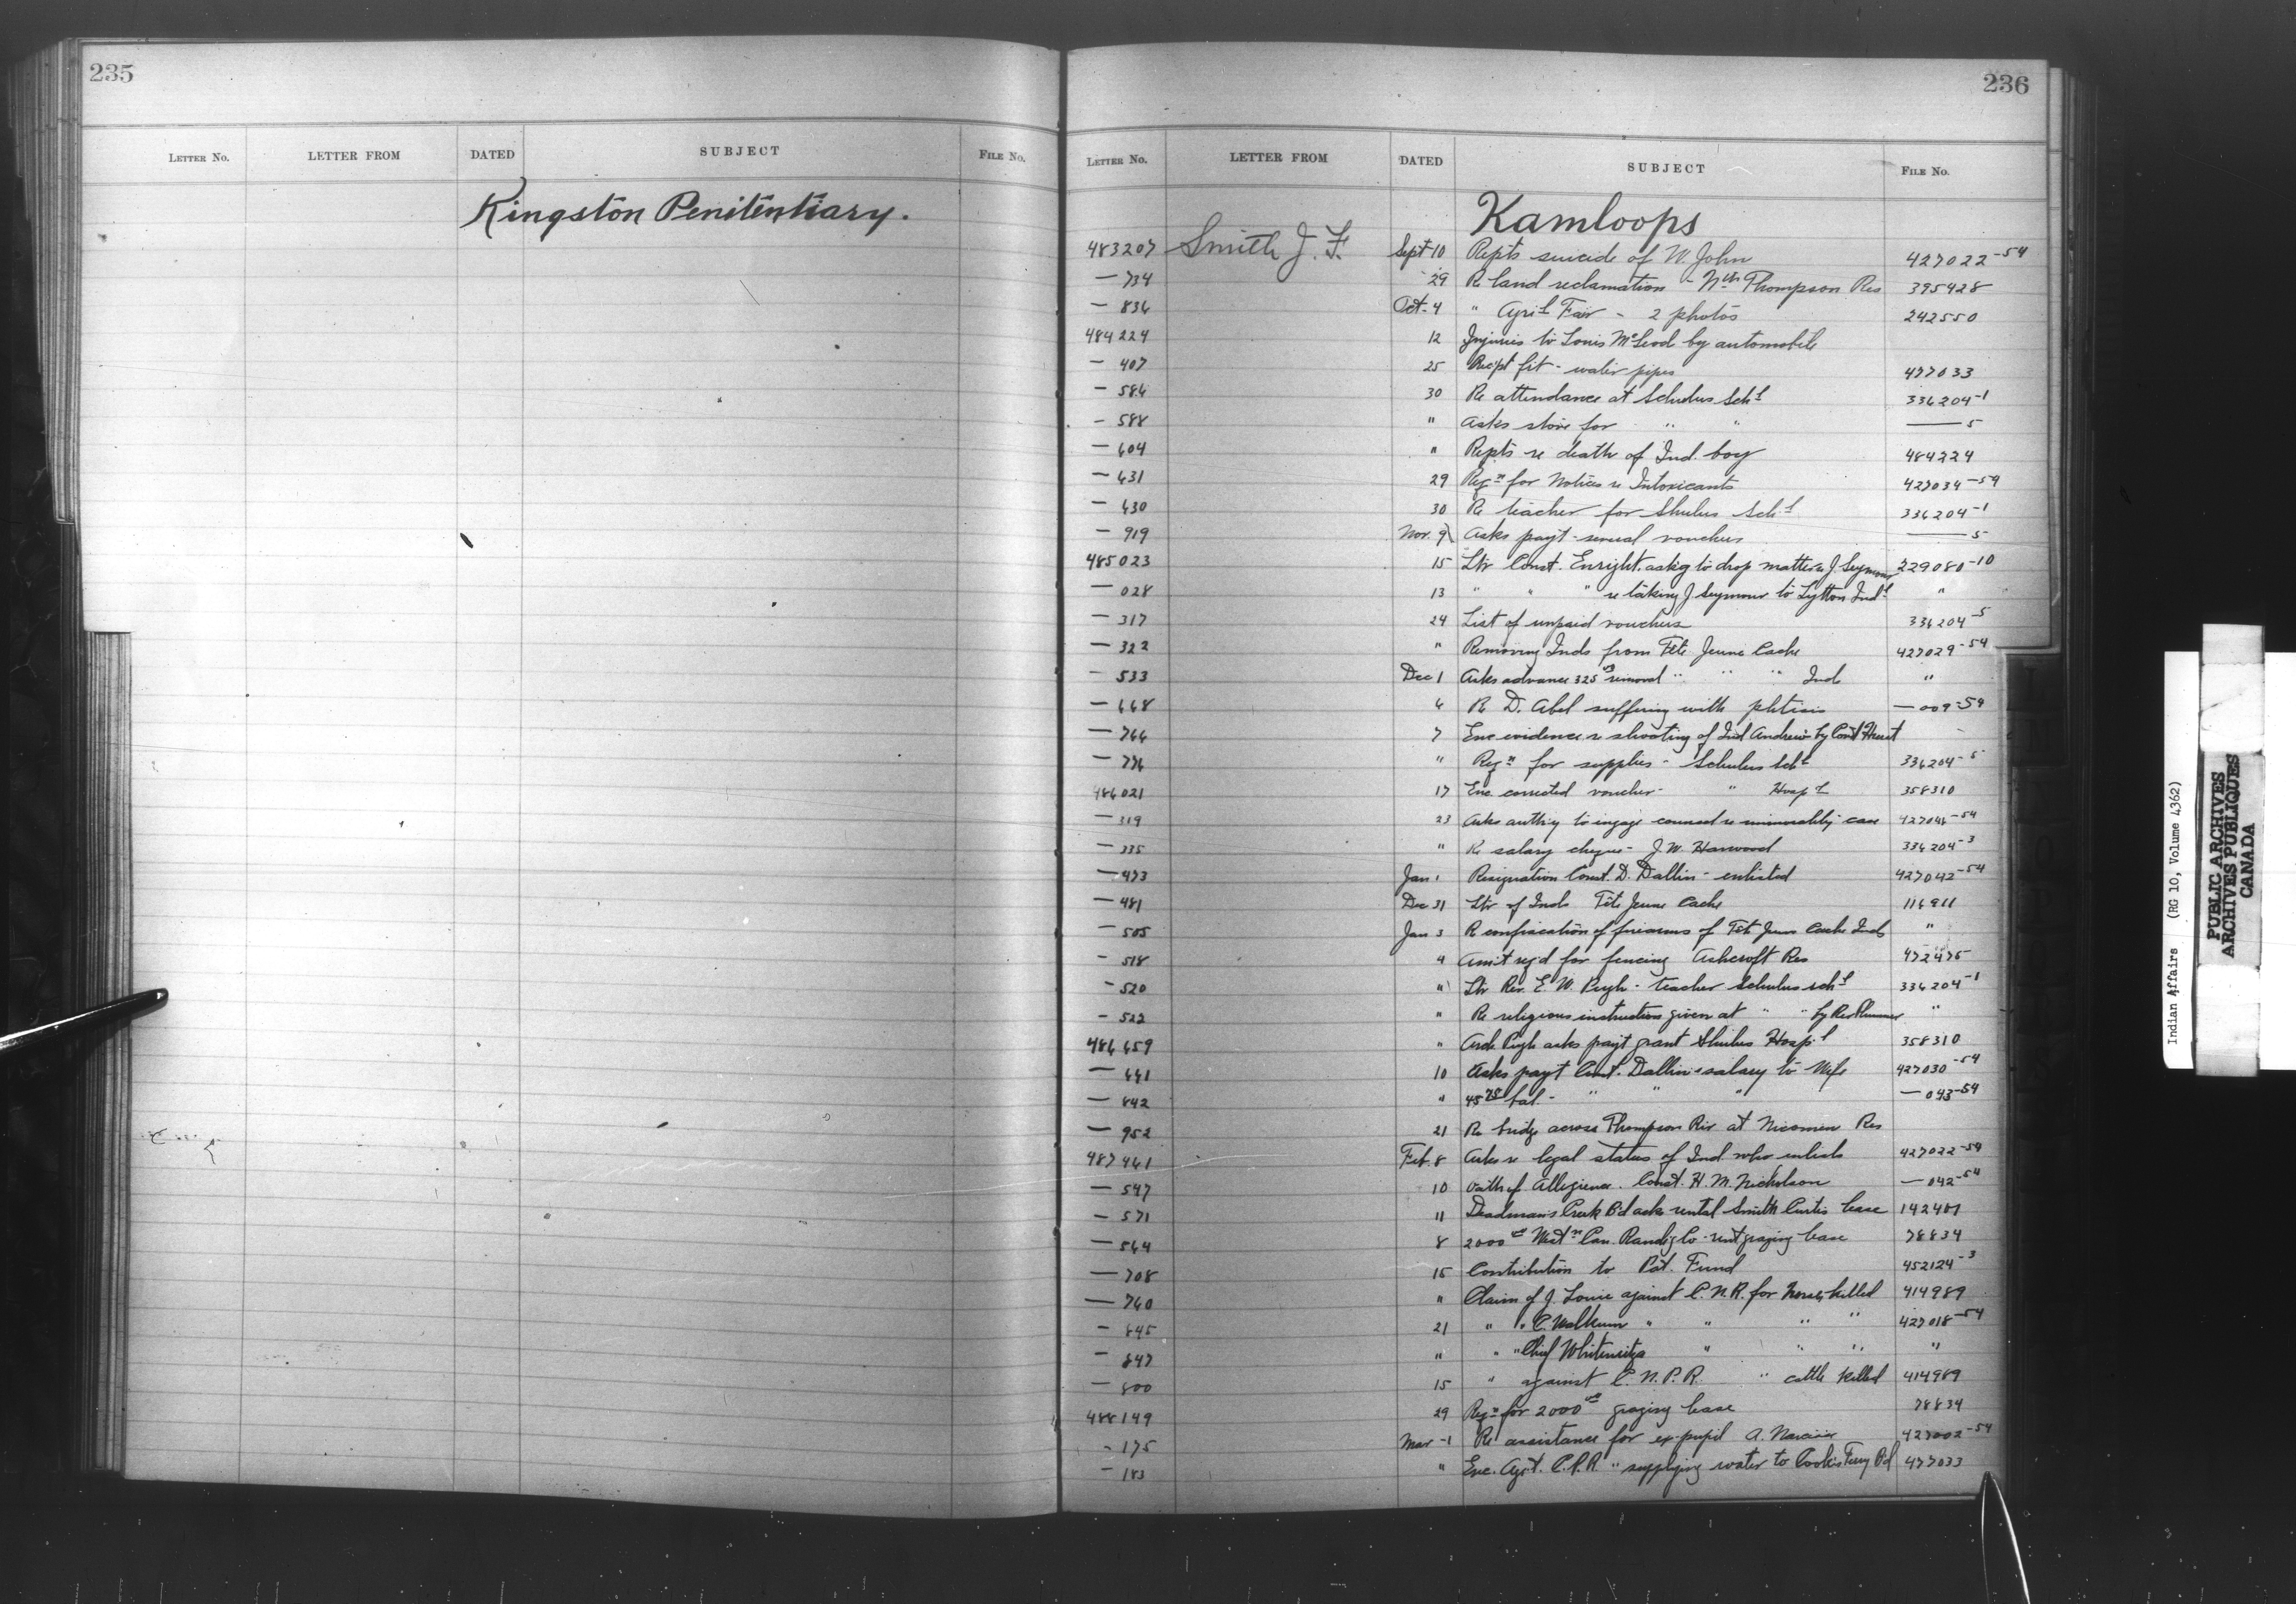 235
LETTER NO. LETTER FROM DATED SUBJECT FILE NO.
Kingston Penitentiary.
236
LETTER NO. LETTER FROM DATED SUBJECT FILE NO.
Kamloops
483207 Smith J. F. Sept 10 Repts suicide of W. John 427022-54
— 734 29 Re land reclamation - Nth Thompson Res 395428
— 836 Oct. 4 " Agril Fair - 2 photos 242550
484224 12 Injuries to Louis McLeod by automobile
— 407 25 fit - water pipes 477033
— 586 30 Re attendance at Schulus Schl 336204-1
— 588 " Asks stove for " " — 5
— 604 " Repts re death of Ind. boy 484224
— 631 29 Reqn for Notices re Intoxicants 427034-54
— 630 30 Re teacher for Shulus Schl 336204-1
— 919 Nov. 9 Asks payt - several vouchers — 5
485023 15 Ltr Const. Enright. askg to drop matter re J. Seymour 229080-10
— 028 13 " " " re taking J Seymour to Lytton Indl "
— 317 24 List of unpaid vouchers 336204-5
— 322 " Removing Inds from Tête Jeune Cache 427029-54
— 533 Dec 1 Asks advance 325 00 removal " " " Ind "
— 668 6 Re D. Abel suffering with phtisis — 009-54
— 766 7 Enc evidence re shooting of Ind Andrew by Const
— 776 " Reqn for supplies - Schulus Schl 336204-5
486021 17 Enc. corrected voucher - " Hospl 358310
— 319 23 Asks authy to engage counsel re immorality case 427046-54
— 335 " Re salary cheque - J. W. Harwood 336204-3
— 473 Jan 1 Resignation Const. D. Dallin - enlisted 427042-54
— 481 Dec 31 Ltr of Inds Tête Jeune Cache 116911
— 505 Jan 3 Re confiscation of firearms of Tête Jeune Cache Inds "
— 518 4 Amt reqd for fencing Ashcroft Res 472475
— 520 " Ltr Rev. E. W. Pugh - teacher Schulus schl 336204-1
— 522 " Re religious instruction given at " " by Rev Plummer "
486659 " Arch Pugh asks payt grant Shulus Hospl 358310
— 661 10 Asks payt Const. Dallin's salary to Wife 427030-54
— 842 " 45 75 bal. - " " " — 043-54
— 952 21 Re bridge across Thompson Riv at Nicomen Res
487461 Feb. 8 Asks re legal status of Ind who enlists 427022-54
— 547 10 Oath of Allegience. Const. H. M. Nicholson — 042-54
— 571 11 Deadman's Creek Bd asks rental Smith Curtis lease 142487
— 564 8 2000 00 Westn Can. Ranchg Co - rent grazing lease 78834
— 708 15 Contribution to Pat. Fund 452124-3
— 760 " Claim of J. Louie against C. N. R. for horses killed 414989
— 845 21 " " C. " " " " 427018-54
— 847 " " " Chief " " " "
— 800 15 " against C. N. P. R. " cattle killed 414989
488149 29 Reqn for 2000 00 grazing lease 78834
— 175 Mar - 1 Re assistance for ex-pupil A. Narcisse 427002-54
— 183 " Enc. Agrt. C. P. R. " supplying water to Cook's Ferry Bd 477033
Indian Affairs (RG 10, Volume 4362)
PUBLIC ARCHIVES
ARCHIVES PUBLIQUES
CANADA